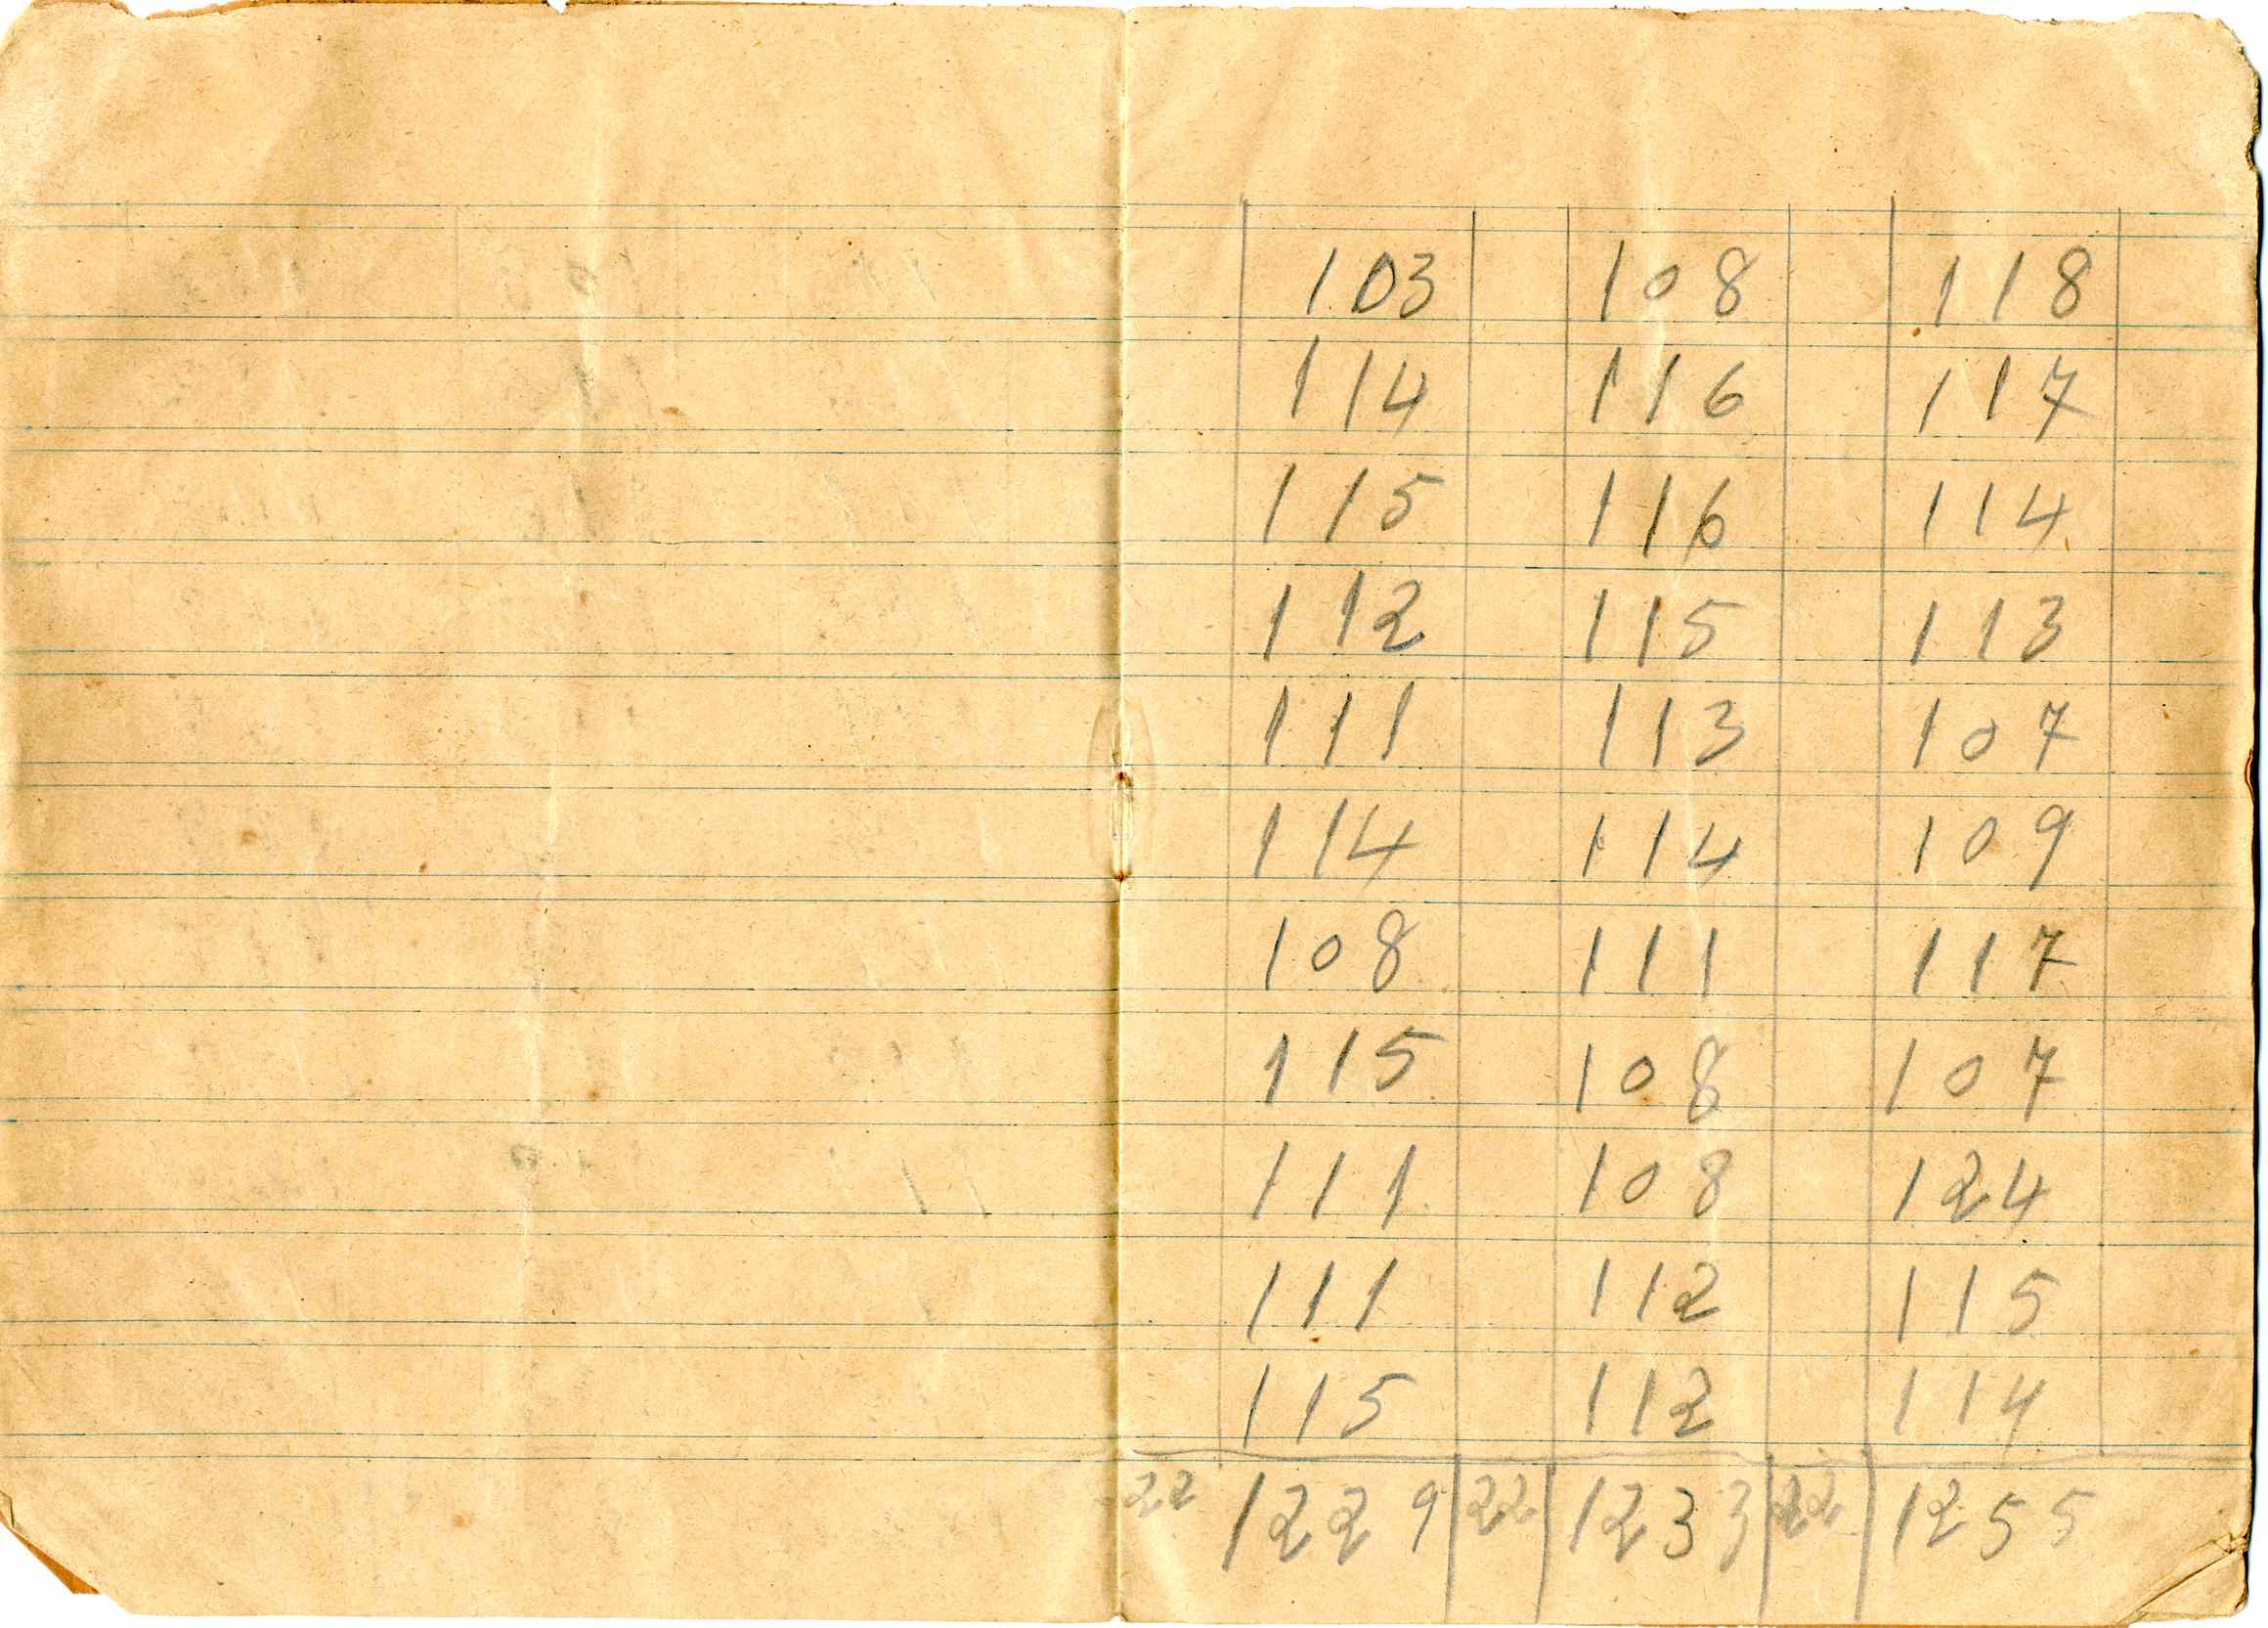 103 108 118
114 116 117
115 116 114
112 115 113
111 113 107
114 114 109
108 111 117
115 108 107
111 108 124
111 112 115
115 112 114
22 1229 22 1233 22 1255